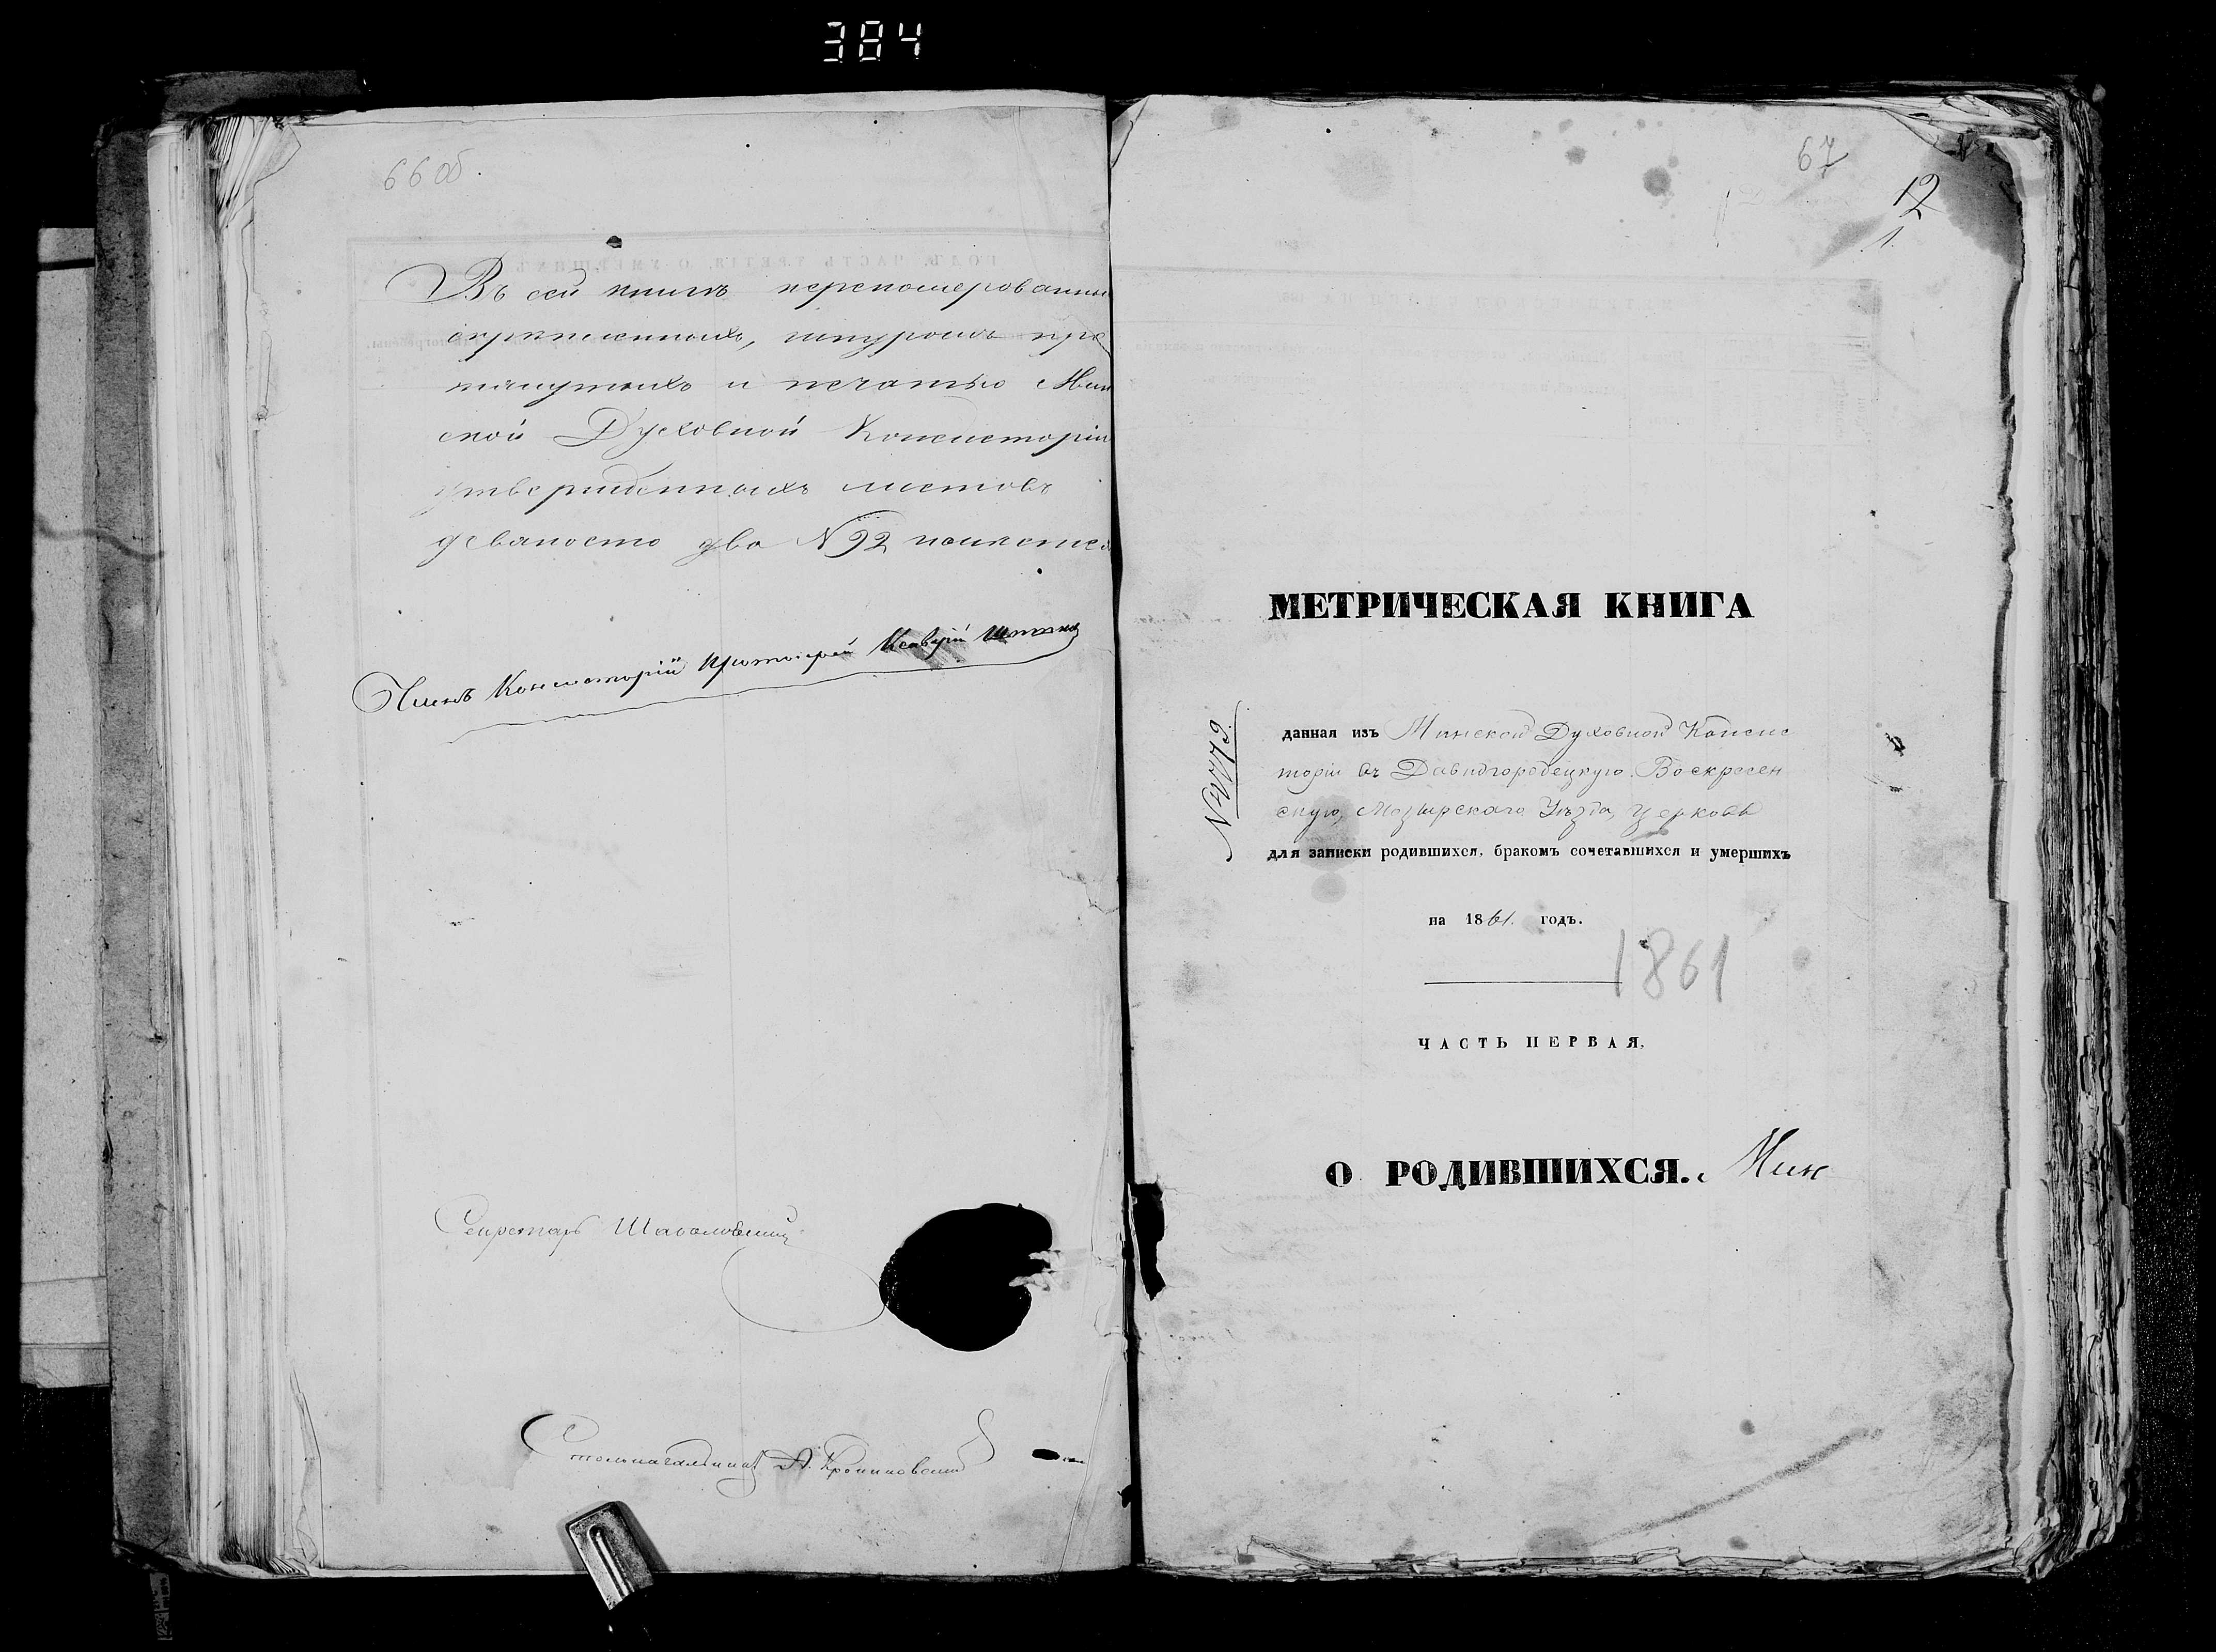 384
66 об.
Въ сей книгѣ переномерованны
скрѣпленныхъ, шнуромъ про
тянутыхъ и печатью Мин
ской Духовной Консисторіи
утвержденныхъ листовъ
девяносто два N 92
Членъ Консисторіи Протоіерей
Секретарь
Столоначальникъ
67
12
1.
МЕТРИЧЕСКАЯ КНИГА
данная изъ Минской Духовной Консис
торіи въ Давидгородецкую Воскресен
скую, Мозырскаго Уѣзда, церковь
для записки родившихся, бракомъ сочетавшихся и умершихъ
на 1861. годъ.
1861
ЧАСТЬ ПЕРВАЯ,
О РОДИВШИХСЯ. Мин